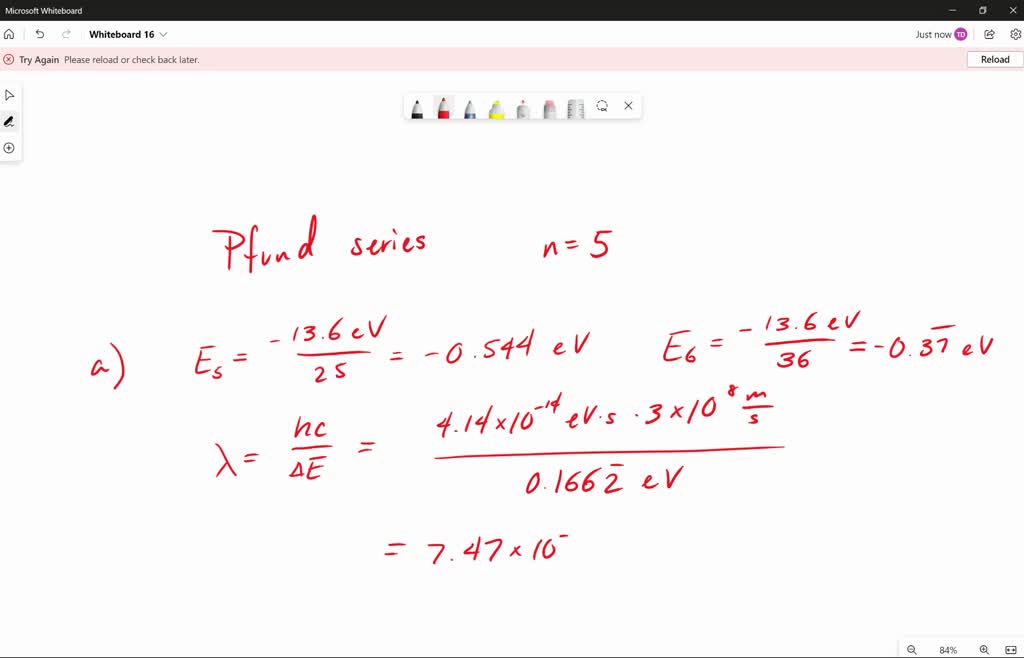 Microsoft Whiteboard
Whiteboard 16
Just now TD
Try Again Please reload or check back later.
Reload
Pfund series n = 5
a) E₅ = -13.6 eV / 25 = -0.544 eV E₆ = -13.6 eV / 36 = -0.37̅ eV
λ = hc / ΔE = 4.14 × 10⁻¹⁴ eV·s · 3 × 10⁸ m/s / 0.1662̅ eV
= 7.47 × 10⁻
84%